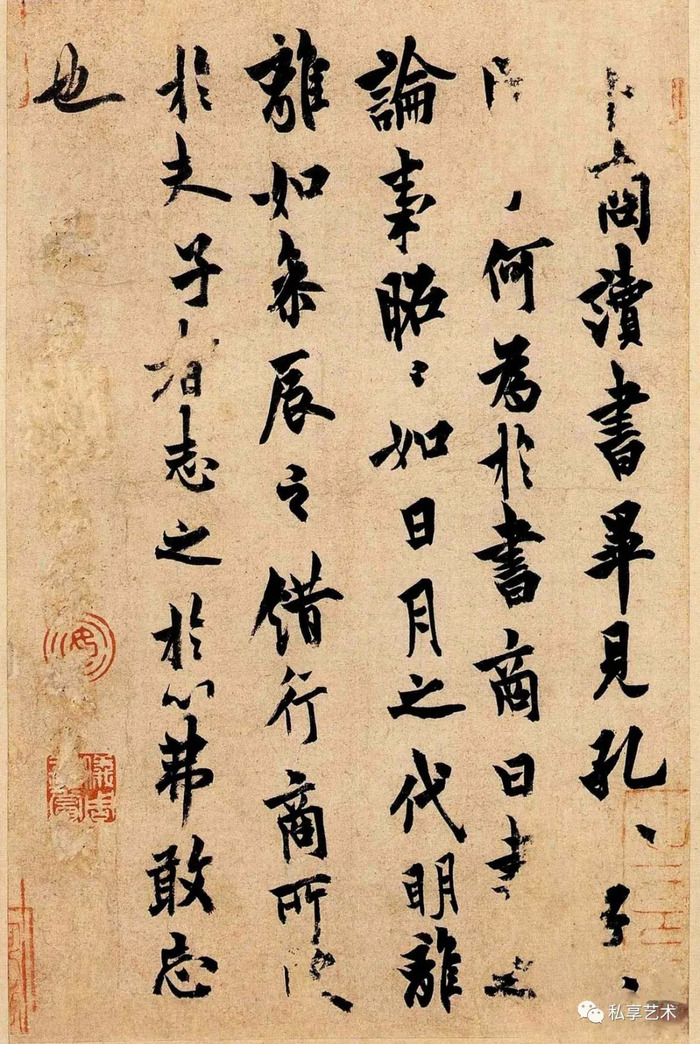 卜商讀書畢見孔、子、
何為於書商曰書之
論事昭〻如日月之代明離
離如參辰之錯行商所受
於夫子者志之於心弗敢忘
也
私享艺术